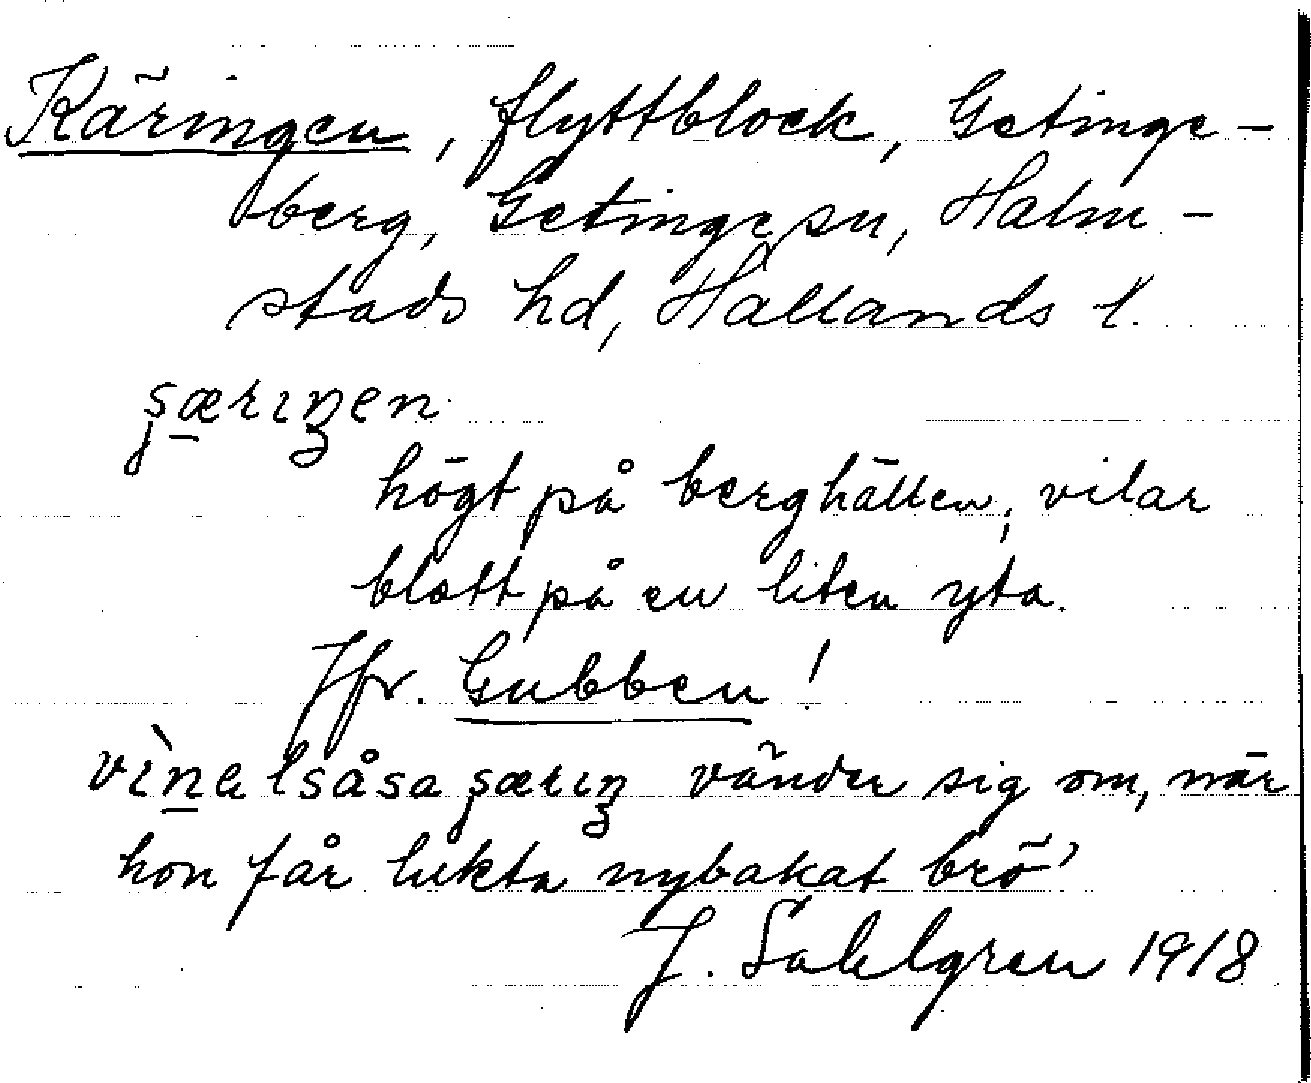 Käringen, flyttblock, Getinge-
berg, Getinge sn, Halm-
stads hd, Hallands l.
s̡æ̱rɩŋen
högt på berghällen, vilar
blott på en liten yta.
Jfr. Gubben!
vɩ̀ṉalsåsa s̡ærɩŋ vänder sig om, när
hon får lukta nybakat brö'
J. Sahlgren 1918